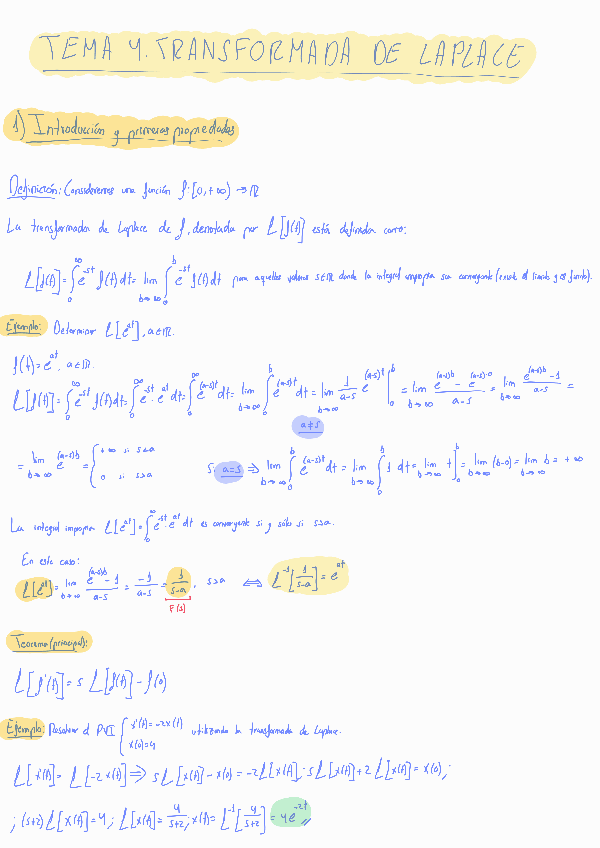 TEMA 4. TRANSFORMADA DE LAPLACE
1) Introducción y primeras propiedades
Definición: Consideremos una función f: [0,+∞) → ℝ
La transformada de Laplace de f, denotada por L[f(t)] está definida como:
L[f(t)] = ∫₀^∞ e^{-st} f(t) dt = lim_{b→∞} ∫₀^b e^{-st} f(t) dt para aquellos valores s∈ℝ donde la integral impropia sea convergente (existe el límite y es finito).
Ejemplo: Determinar L[e^{at}], a∈ℝ.
f(t) = e^{at}, a∈ℝ.
L[f(t)] = ∫₀^∞ e^{-st} f(t) dt = ∫₀^∞ e^{-st} · e^{at} dt = ∫₀^∞ e^{(a-s)t} dt = lim_{b→∞} ∫₀^b e^{(a-s)t} dt = lim_{b→∞} 1/(a-s) e^{(a-s)t} |₀^b = lim_{b→∞} (e^{(a-s)b} - e^{(a-s)·0})/(a-s) = lim_{b→∞} (e^{(a-s)b} - 1)/(a-s) =
a≠s
= lim_{b→∞} e^{(a-s)b} = { +∞ si s<a
0 si s>a
Si a=s ⇒ lim_{b→∞} ∫₀^b e^{(a-s)t} dt = lim_{b→∞} ∫₀^b 1 dt = lim_{b→∞} t |₀^b = lim_{b→∞} (b-0) = lim_{b→∞} b = +∞
La integral impropia L[e^{at}] = ∫₀^∞ e^{-st} · e^{at} dt es convergente si y sólo si s>a.
En este caso:
L[e^{at}] = lim_{b→∞} (e^{(a-s)b} - 1)/(a-s) = -1/(a-s) = 1/(s-a), s>a ⟺ L^{-1}[1/(s-a)] = e^{at}
F(s)
Teorema (principal):
L[f'(t)] = s L[f(t)] - f(0)
Ejemplo: Resolver el PVI { x'(t) = -2x(t)
x(0) = 4
utilizando la transformada de Laplace.
L[x'(t)] = L[-2x(t)] ⇒ s L[x(t)] - x(0) = -2L[x(t)]; s L[x(t)] + 2 L[x(t)] = x(0);
; (s+2) L[x(t)] = 4; L[x(t)] = 4/(s+2); x(t) = L^{-1}[4/(s+2)] = 4e^{-2t} //